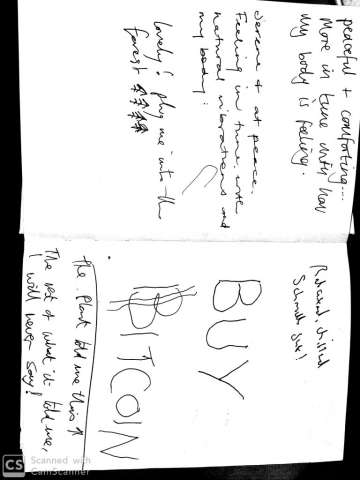 peaceful + comforting...
More in tune with how
my body is feeling.
Serene & at peace.
Feeling in tune with
natural vibrations and
my body.
lovely! plug me into the
forest
Relaxed chilled
BUY
BITCOIN
The plant told me this
The rest of what it told me,
I will never say!
CS Scanned with
CamScanner